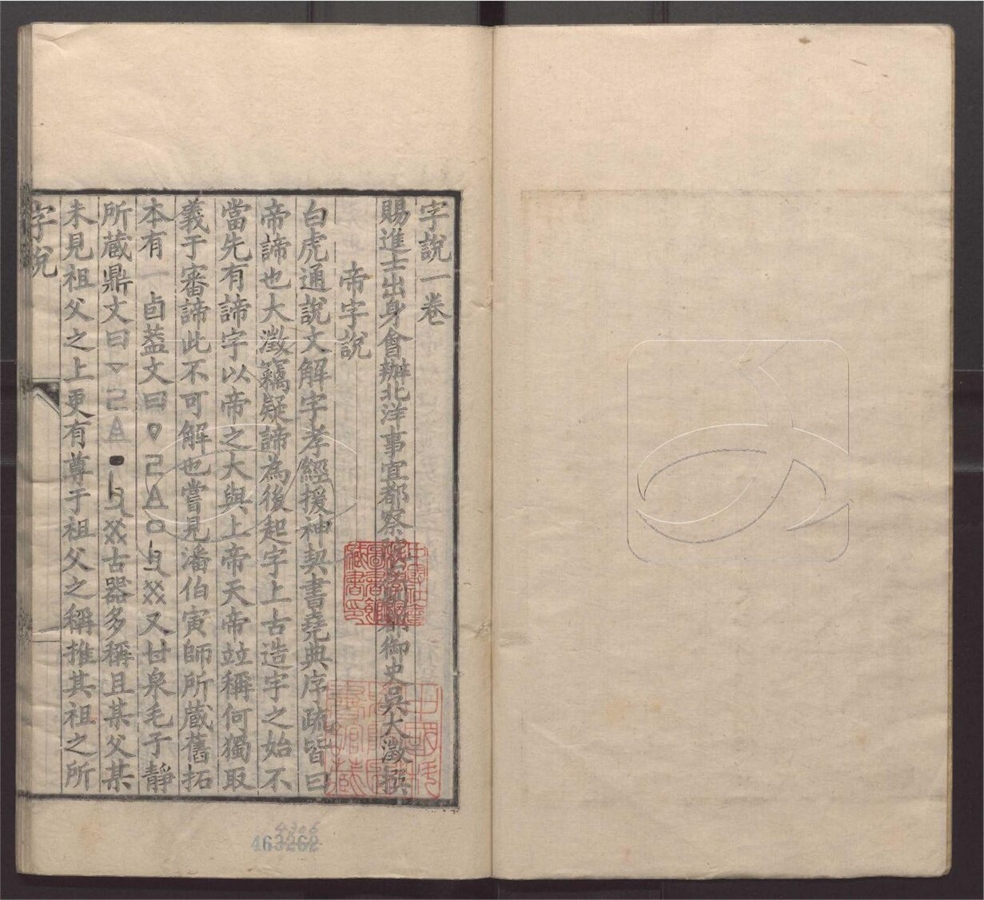 字說一卷
賜進士出身會辦北洋事宜都察御史吳大澂撰
帝字說
白虎通說文解字孝經援神契書堯典序疏皆曰
帝諦也大澂竊疑諦為後起字上古造字之始不
當先有諦字以帝之大與上帝天帝竝稱何獨取
義于審諦此不可解也嘗見潘伯寅師所藏舊拓
本有一卣葢文曰又甘泉毛子靜
所藏鼎文曰古器多稱且某父某
未見祖父之上更有尊于祖父之稱推其祖之所
字說
463262